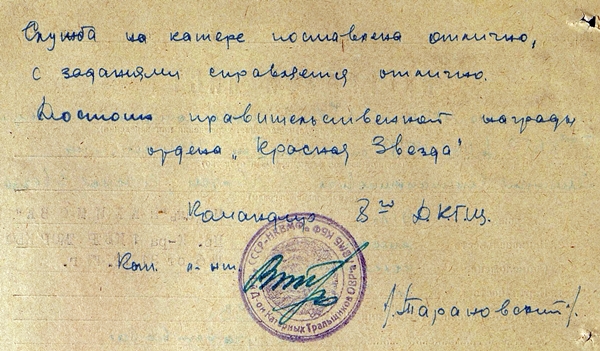 Служба на катере поставлена отлично,
с заданиями справляется отлично.
Достоин правительственной награды
ордена „Красная Звезда"
Командир 3го Д.К.ТЩ.
Кап. л-нт
/Тарановский/.
СССР-НКВМФ
Д-он Катерных Тральщиков ОВРа